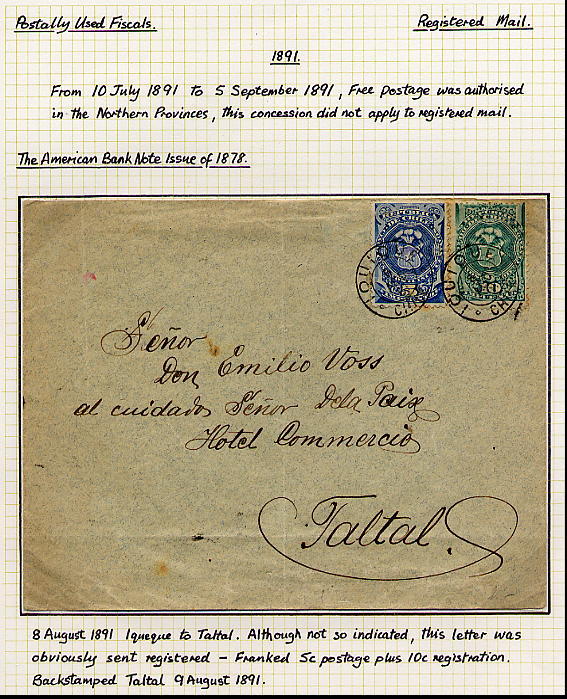 Postally Used Fiscals. Registered Mail.
1891.
From 10 July 1891 to 5 September 1891, Free Postage was authorised
in the Northern Provinces, this concession did not apply to registered mail.
The American Bank Note Issue of 1878.
IQUIQUE IQUIQUE
5 10
CHILE CHILE
Señor
Don Emilio Voss
al cuidado Señor De la Paix
Hotel Commercio
Taltal.
8 August 1891 Iqueque to Taltal. Although not so indicated, this letter was
obviously sent registered – Franked 5c postage plus 10c registration.
Backstamped Taltal 9 August 1891.